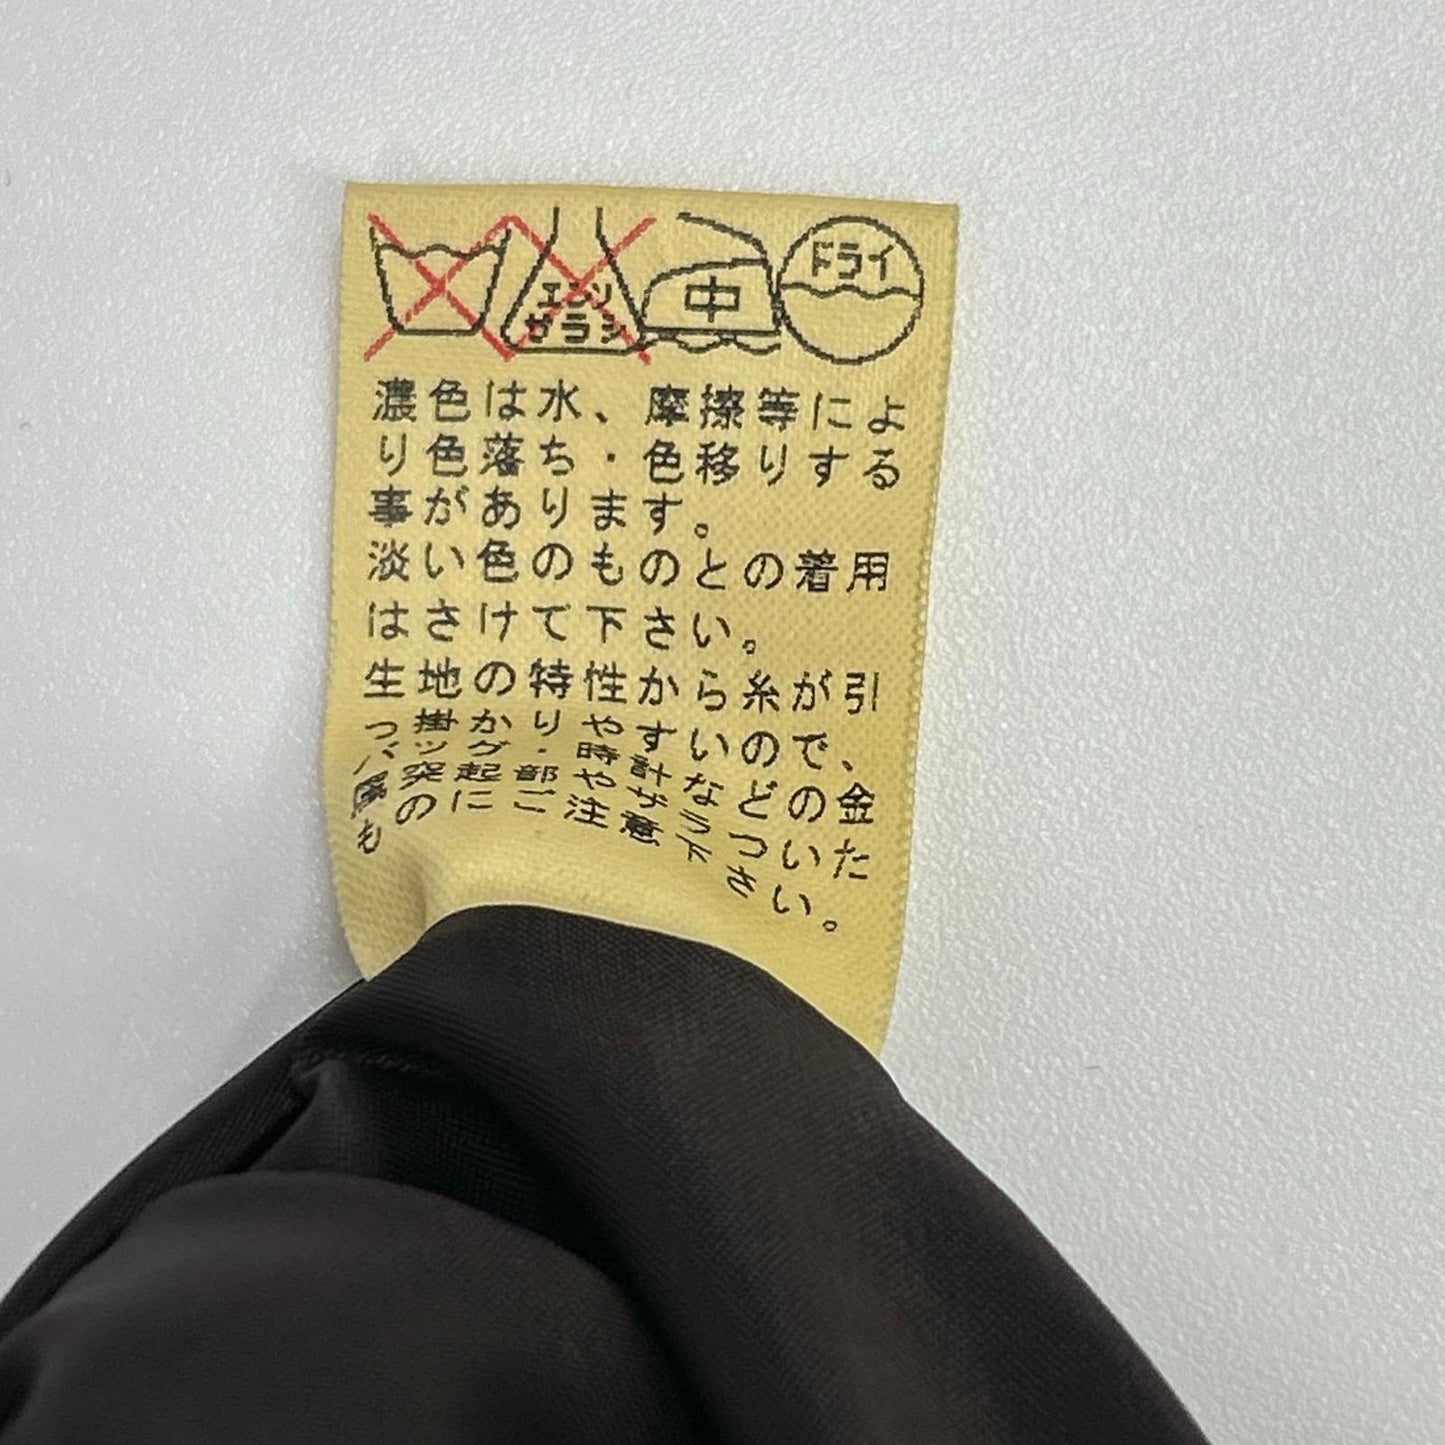 エンソ
サラシ
中
ドライ
濃色は水、摩擦等によ
り色落ち・色移りする
事があります。
淡い色のものとの着用
はさけて下さい。
生地の特性から糸が引
っ掛かりやすいので、
バッグ・時計などの金
属突起部やザラついた
ものにご注意下さい。